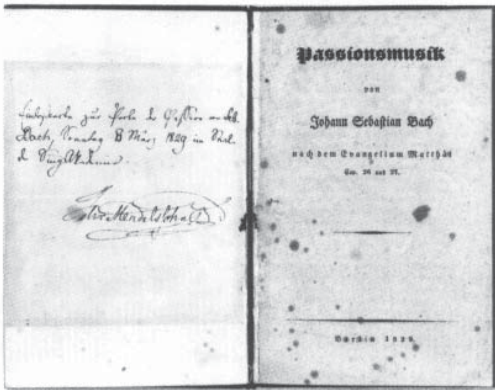 zur Probe der Passion
Bach, Sonntag 8 März 1829 im Saal
d. Singakademie.
Felix Mendelssohn
Passionsmusik
von
Johann Sebastian Bach
nach dem Evangelium Matthäi
Cap. 26 und 27.
Berlin 1829